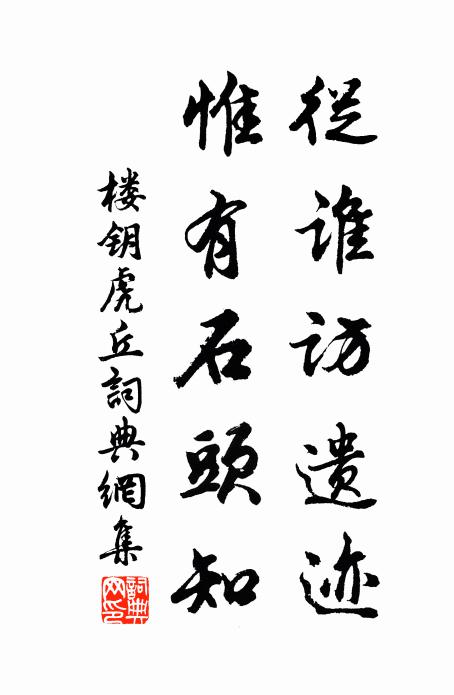 從誰訪遺迹
惟有石頭知
楼钥虎丘詞典網集
詞典网印